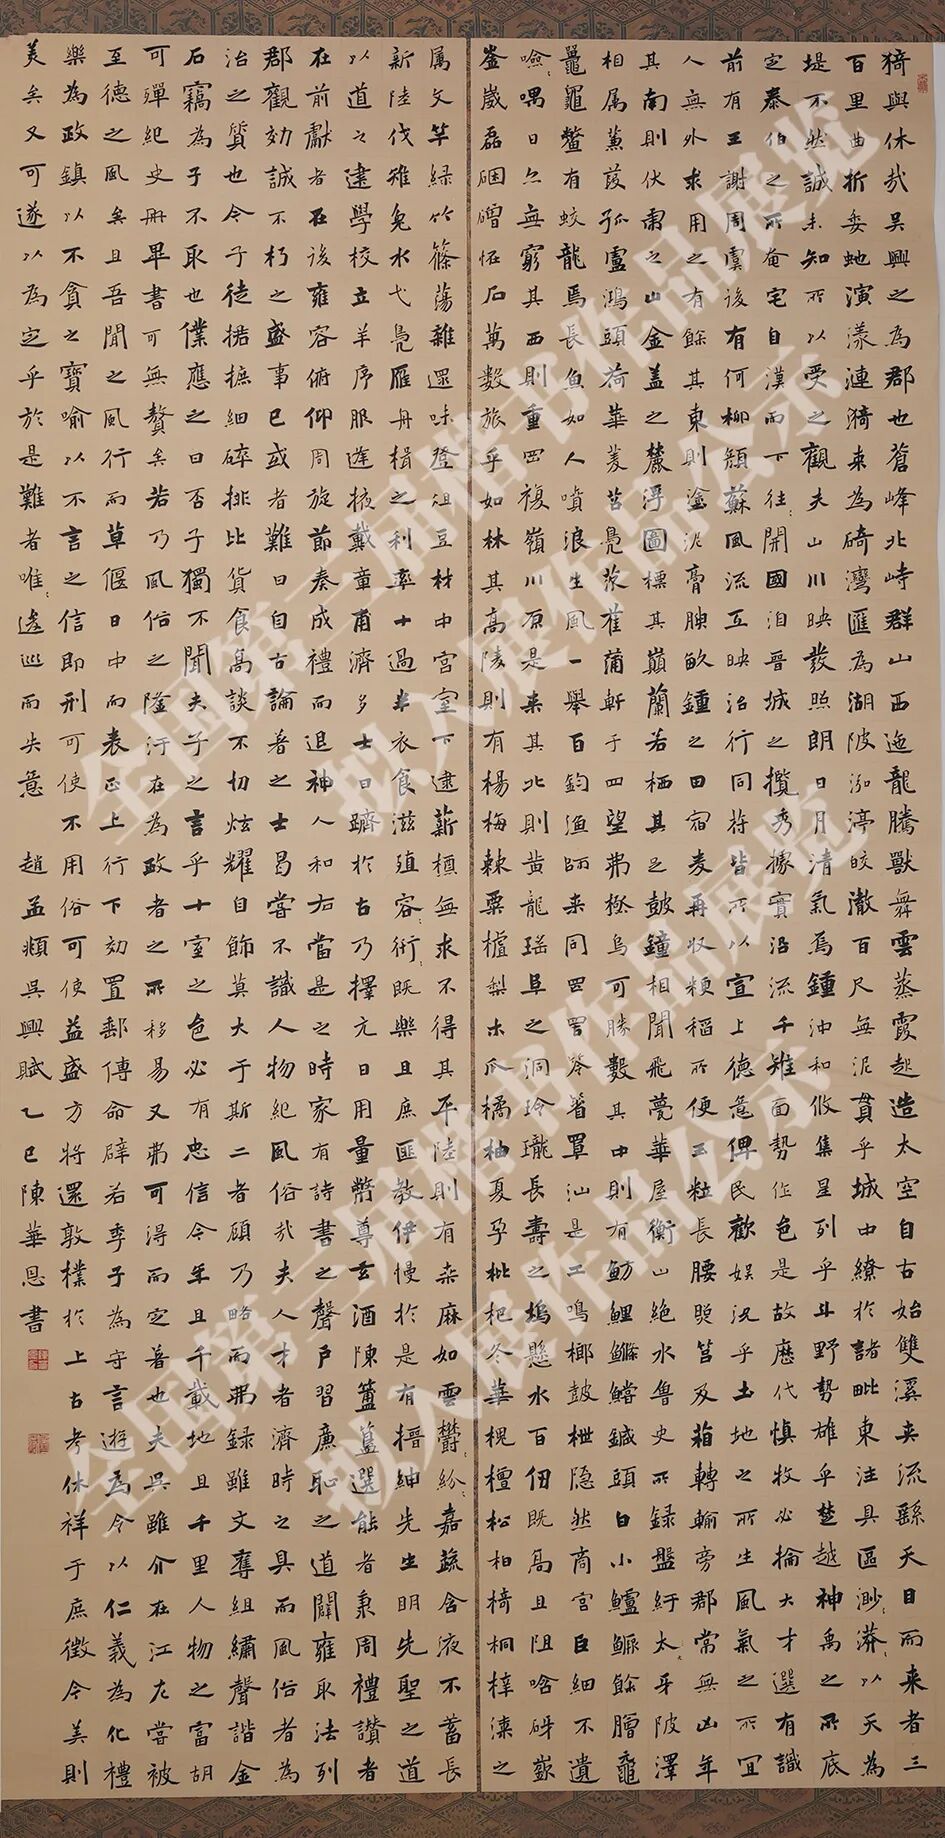 猗與休哉吳興之為郡也蒼峰北峙群山西迤龍騰獸舞雲蒸霞起造太空自古始雙溪夾流繇天目而来者三
百里曲折委蛇演漾漣猗来為碕灣匯為湖陂泓渟皎澈百尺無泥貫乎城中繚於諸毗東注具區渺〻漭〻以天為
堤不然誠未知所以受之觀夫山川映發照朗日月清氣焉鍾沖和攸集星列乎斗野勢雄乎楚越神禹之所底
定泰伯之所奄宅自漢而下往〻開國洎晉城之攬秀據實沿流千雉面勢作邑是故歷代慎牧必掄大才選有識
前有王謝周虞後有何柳顏蘇風流互映治行同符皆所以宣上德意俾民歡娛況乎土地之所生風氣之所宜
人無外求用之有餘其東則塗泥膏腴畝鍾之田宿麦再収粳稻所便玉粒長腰照筥及箱轉輸旁郡常無凶年
其南則伏虜之山金盖之麓浮圖標其巔蘭若栖其足鼓鐘相聞飛甍華屋衡山絶水魯史所録盤紆太牙陂澤
相属蒹葭孤盧鴻頭荷華菱苕鳧茨萑蒲軒于四望弗極烏可勝數其中則有魴鯉鰷鱨鍼頭白小鱸鱖餘膾龜
鼉龜鱉有蛟龍焉長魚如人噴浪生風一舉百鈞漁師来同罟罾笭箵罩汕是工鳴榔鼓枻隐然商宮巨細不遺
噞喁日亦無窮其西則重岡複嶺川原是来其北則黃龍瑶阜之洞玲瓏長壽之塢懸水百仞既高且阻硆砑嶔
崟崴磊硱磳怪石萬数旅乎如林其高陵則有楊梅棘栗樝梨木瓜橘柚夏孕枇杷冬華槐檀松柏椅桐梓漆之
属文竿緑竹篠簜雜還味登俎豆材中宮室下逮薪槱無求不得其平陸則有桑麻如雲鬱〻紛〻嘉蔬含液不蓄長
新陸伐雉兔水弋鳧雁舟楫之利率十過半衣食滋殖容〻衎〻既樂且庶匪教伊慢於是有搢紳先生明先聖之道
以道之建學校立羊序服逢掖戴章甫濟〻多士日躋於古乃擇元日用量幣尊玄酒陳簠簋選能者秉周禮讚者
在前獻者在後雍容俯仰周旋節奏成禮而退神人和右當是之時家有詩書之聲户習廉恥之道闢雍取法列
郡觀効誠不朽之盛事已或者難曰自古論著之士曷嘗不識人物紀風俗哉夫人才者濟時之具而風俗者為
治之質也今子徒捃摭細碎排比貨食高談不切炫耀自飾莫大于斯二者顧乃略而弗録雖文奪組繡聲諧金
石竊為子不取也僕應之曰否子獨不聞夫子之言乎十室之邑必有忠信今年且千載地且千里人物之富胡
可殫紀史冊畢書可無贅矣若乃風俗之隆汙在為政者之所移易又弗可得而定著也夫吳雖介在江左嘗被
至德之風矣且吾聞之風行而草偃日中而表正上行下効置郵傳命辟若季子為守言游為令以仁義為化禮
樂為政鎮以不貪之寶喻以不言之信即刑可使不用俗可使益盛方將還敦樸於上古考休祥于庶徵今美則
美矣又可遂以為定乎於是難者唯〻逡巡而失意 趙孟頫吳興賦乙巳陳華恩書
全国第二届楷书作品展览
拟入展作品公示
全国第二届楷书作品展览
拟入展作品公示